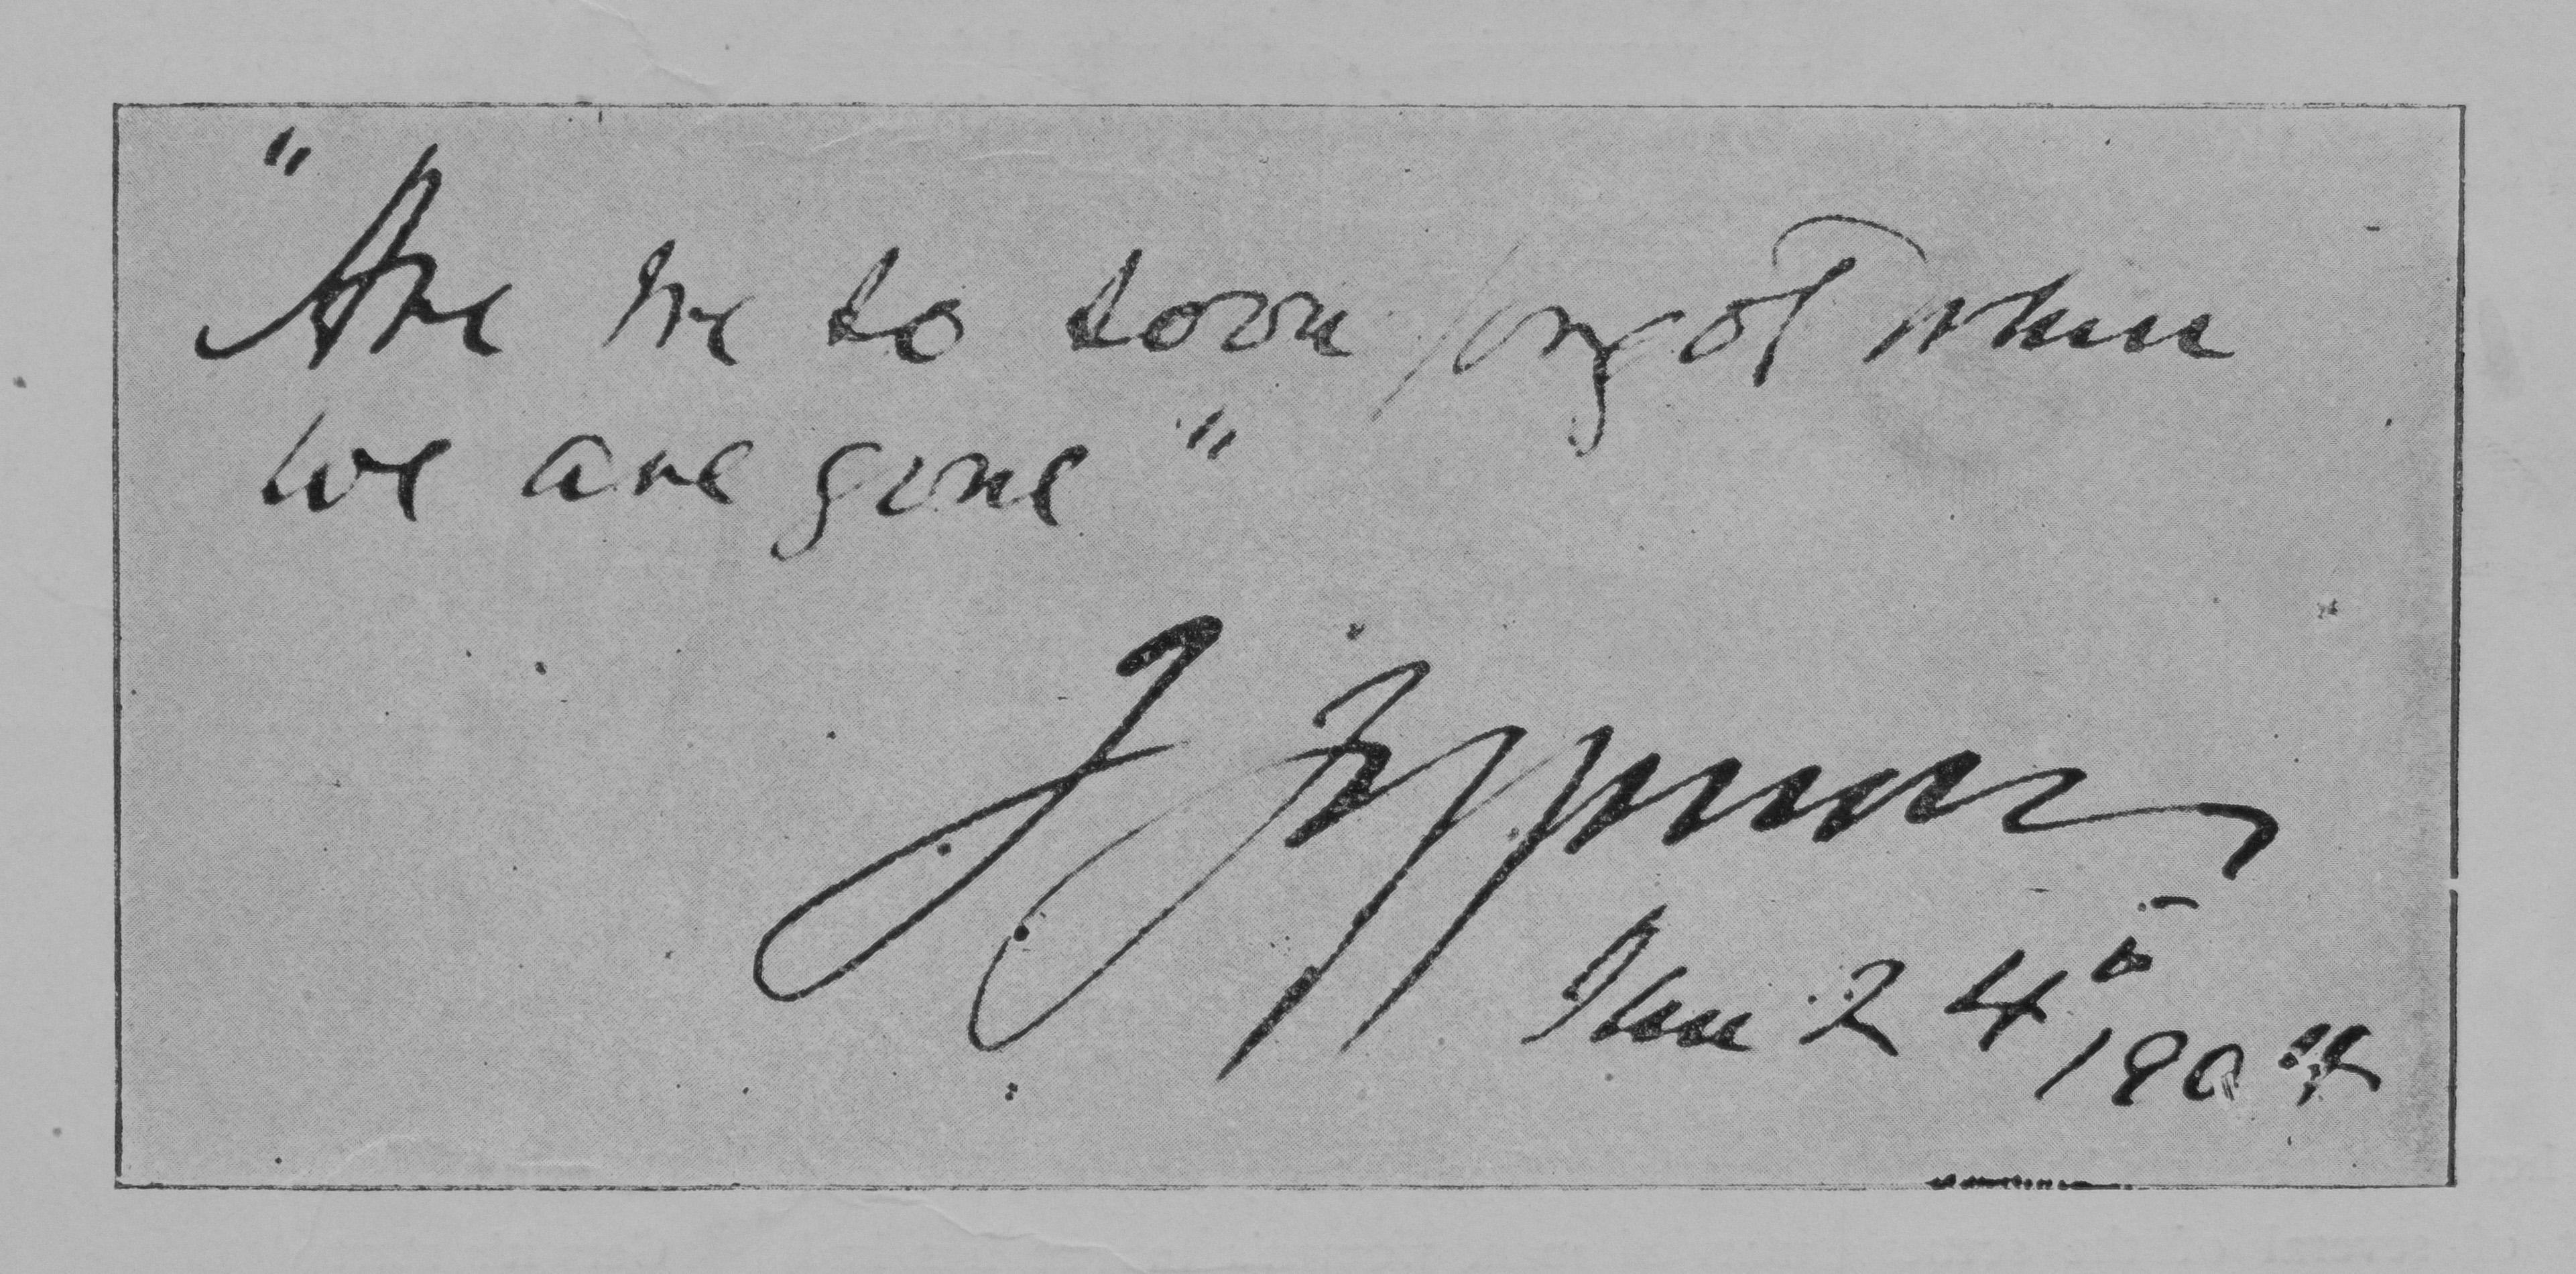 "Are we so soon forgot when
we are gone"
J Jefferson
24th
1904